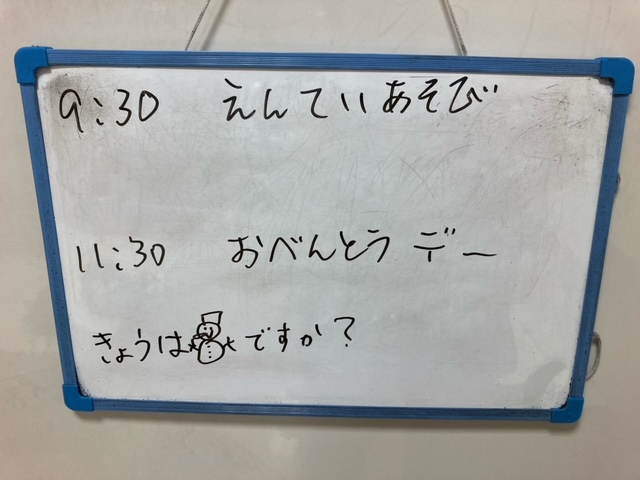 9:30 えんていあそび
11:30 おべんとうデー
きょうは ですか?